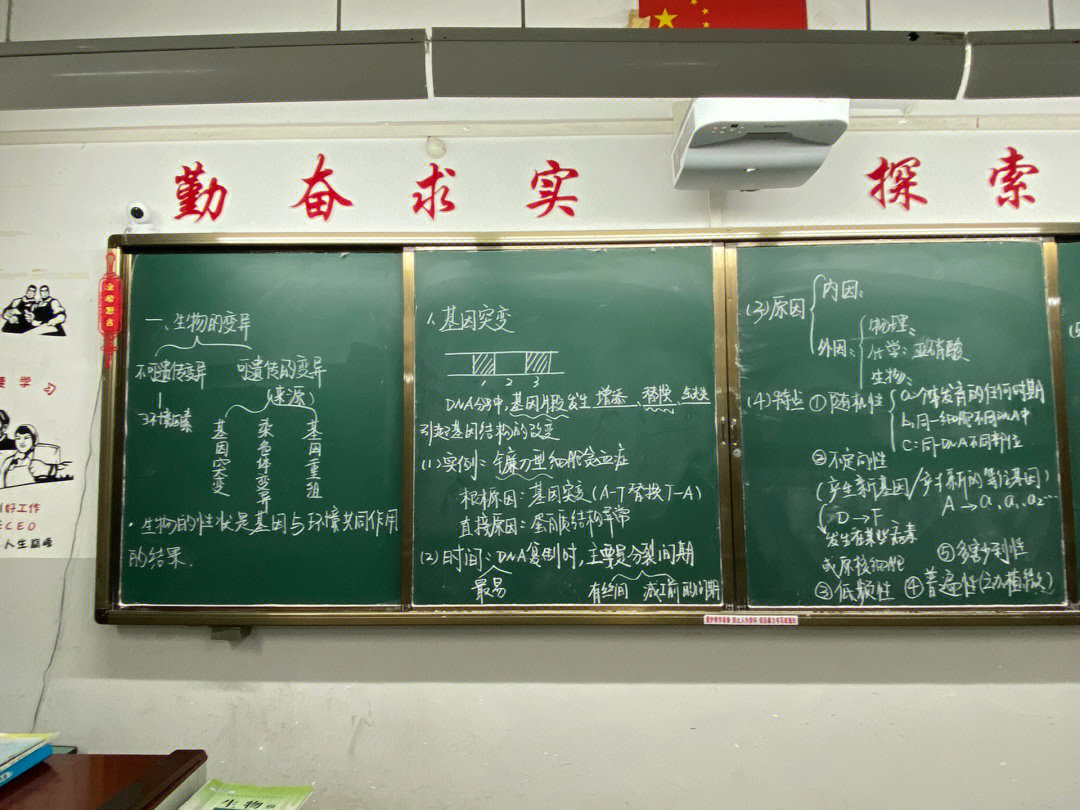 勤奋求实
探索
金榜题名
要学习
好工作
CEO
人生巅峰
一、生物的变异
不可遗传变异
可遗传的变异
环境因素
(来源)
基因突变
染色体变异
基因重组
·生物的性状是基因与环境共同作用
的结果.
1.基因突变
1 2 3
DNA分子中,基因片段发生增添、替换、缺失
引起基因结构的改变
(1)实例:镰刀型细胞贫血症
根本原因:基因突变(A-T替换T-A)
直接原因:蛋白质结构异常
(2)时间:DNA复制时,主要是分裂间期
最易
有丝间 减Ⅰ前的间期
(3)原因
内因:
外因:
物理:
化学:亚硝酸
生物:
(4)特点 ①随机性
a.个体发育的任何时期
b.同一细胞不同DNA中
C:同一DNA不同部位
②不定向性
(产生新基因/多于新的等位基因)
D→F
A→a, a₁, a₂…
发生在某些病毒
或原核细胞
⑤多害少利性
③低频性 ④普遍性(动植微)
生物